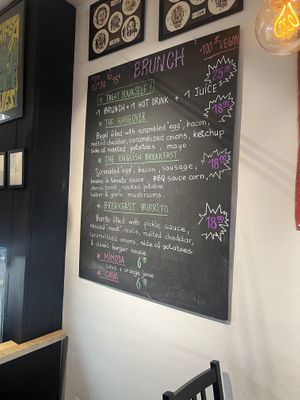 BRUNCH
100% VEGAN
TREAT YOURSELF!
1 BRUNCH + 1 HOT DRINK + 1 JUICE
* THE HANGOVER
Bagel filled with scrambled "egg", bacon,
melted cheddar, caramelized onions, ketchup
side of roasted potatoes, mayo.
18.00
* THE ENGLISH BREAKFAST
Scrambled "egg", bacon, sausage,
beans in tomato sauce, BBQ sauce corn,
toast, roasted potatoes
garlic mushrooms.
18.00
* BREAKFAST BURRITO
Burrito filled with pickle sauce,
minced "meat", rostis, melted cheddar,
caramelized onions, side of potatoes
burger sauce
18.00
* MIMOSA
cava + orange juice
6.00
* CAVA
6.00